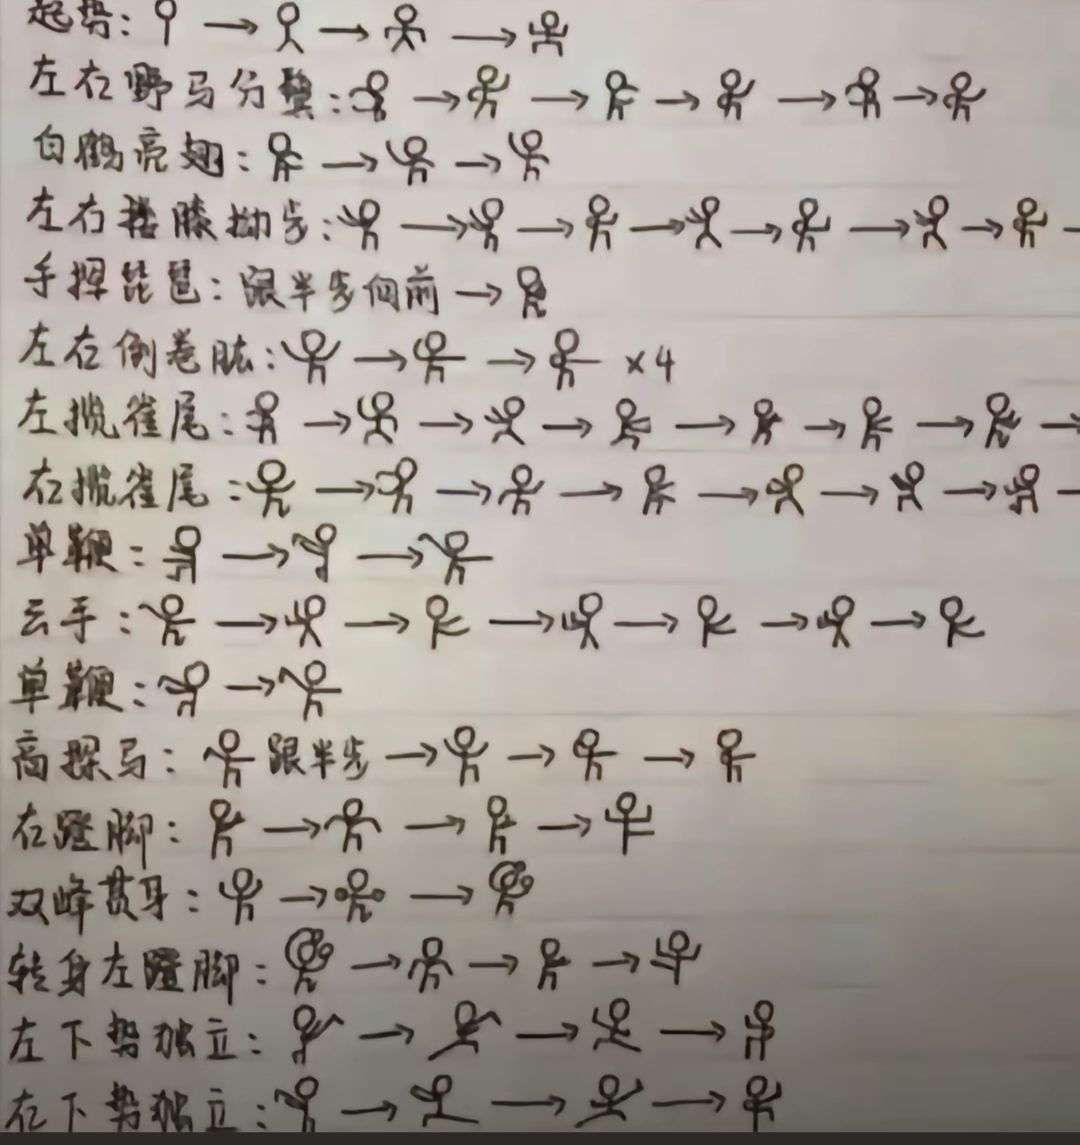 起势:
左右野马分鬃:
白鹤亮翅:
左右搂膝拗步:
手挥琵琶:跟半步向前
左右倒卷肱: ×4
左揽雀尾:
右揽雀尾:
单鞭:
云手:
单鞭:
高探马: 跟半步
右蹬脚:
双峰贯耳:
转身左蹬脚:
左下势独立:
右下势独立: